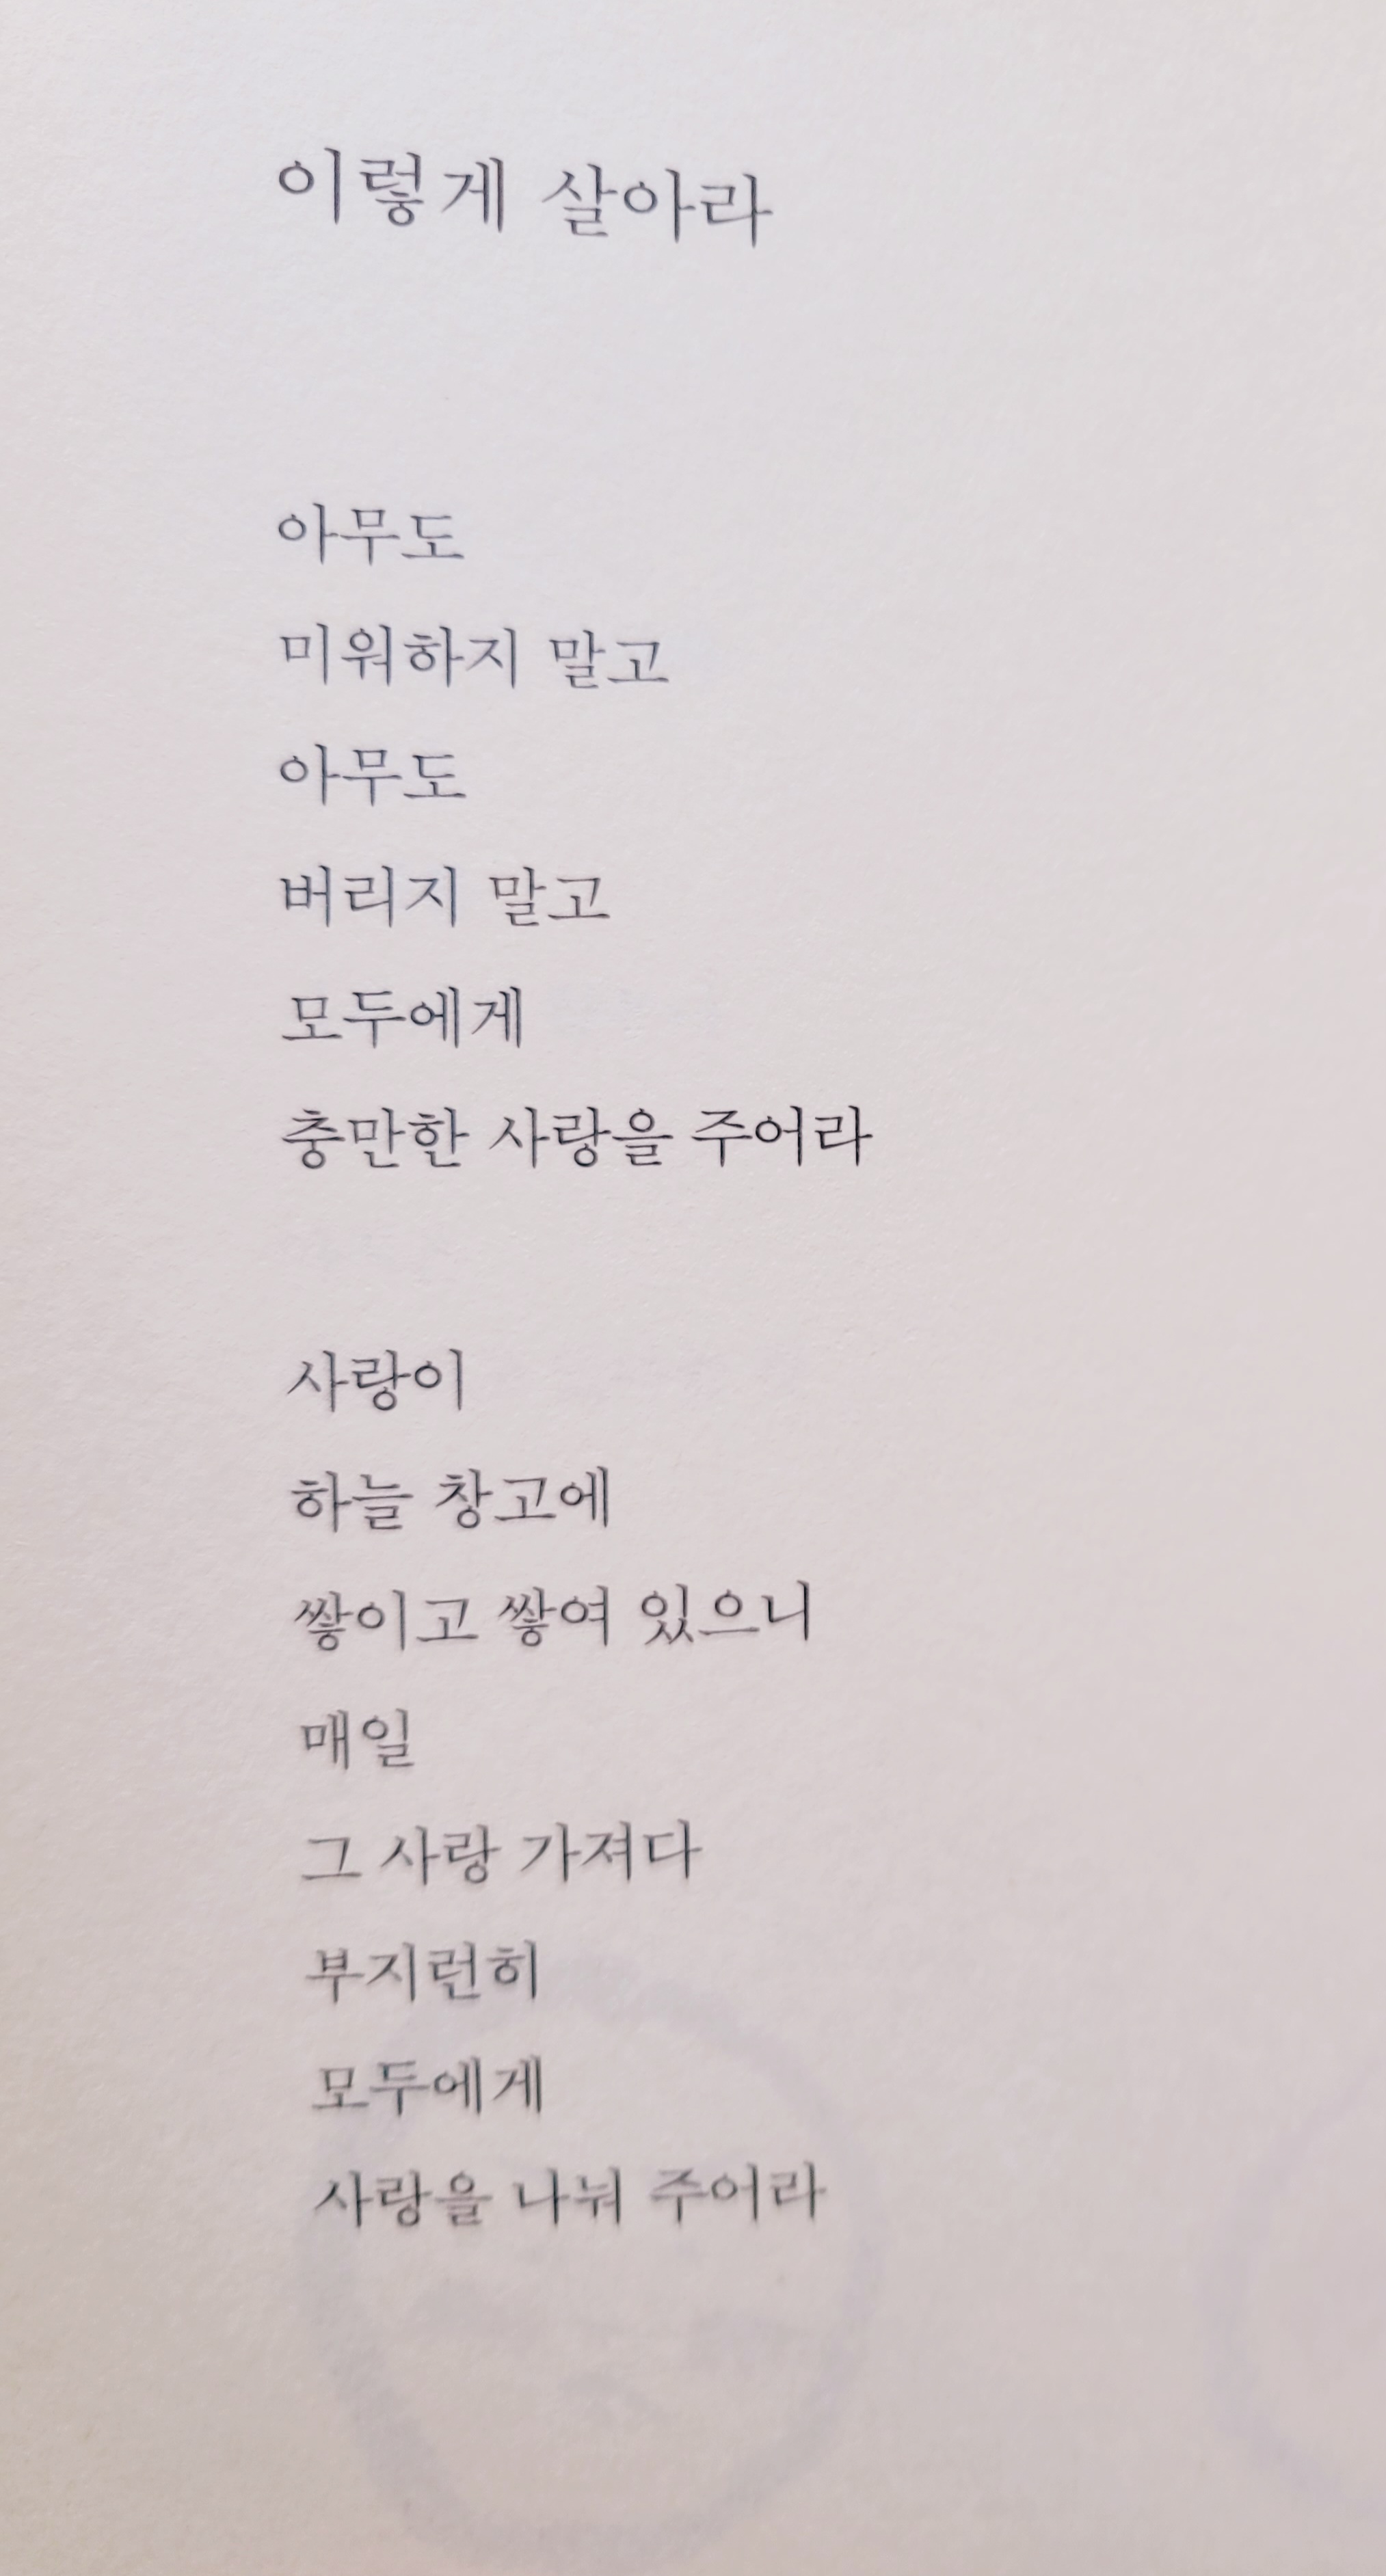 이렇게 살아라
아무도
미워하지 말고
아무도
버리지 말고
모두에게
충만한 사랑을 주어라
사랑이
하늘 창고에
쌓이고 쌓여 있으니
매일
그 사랑 가져다
부지런히
모두에게
사랑을 나눠 주어라